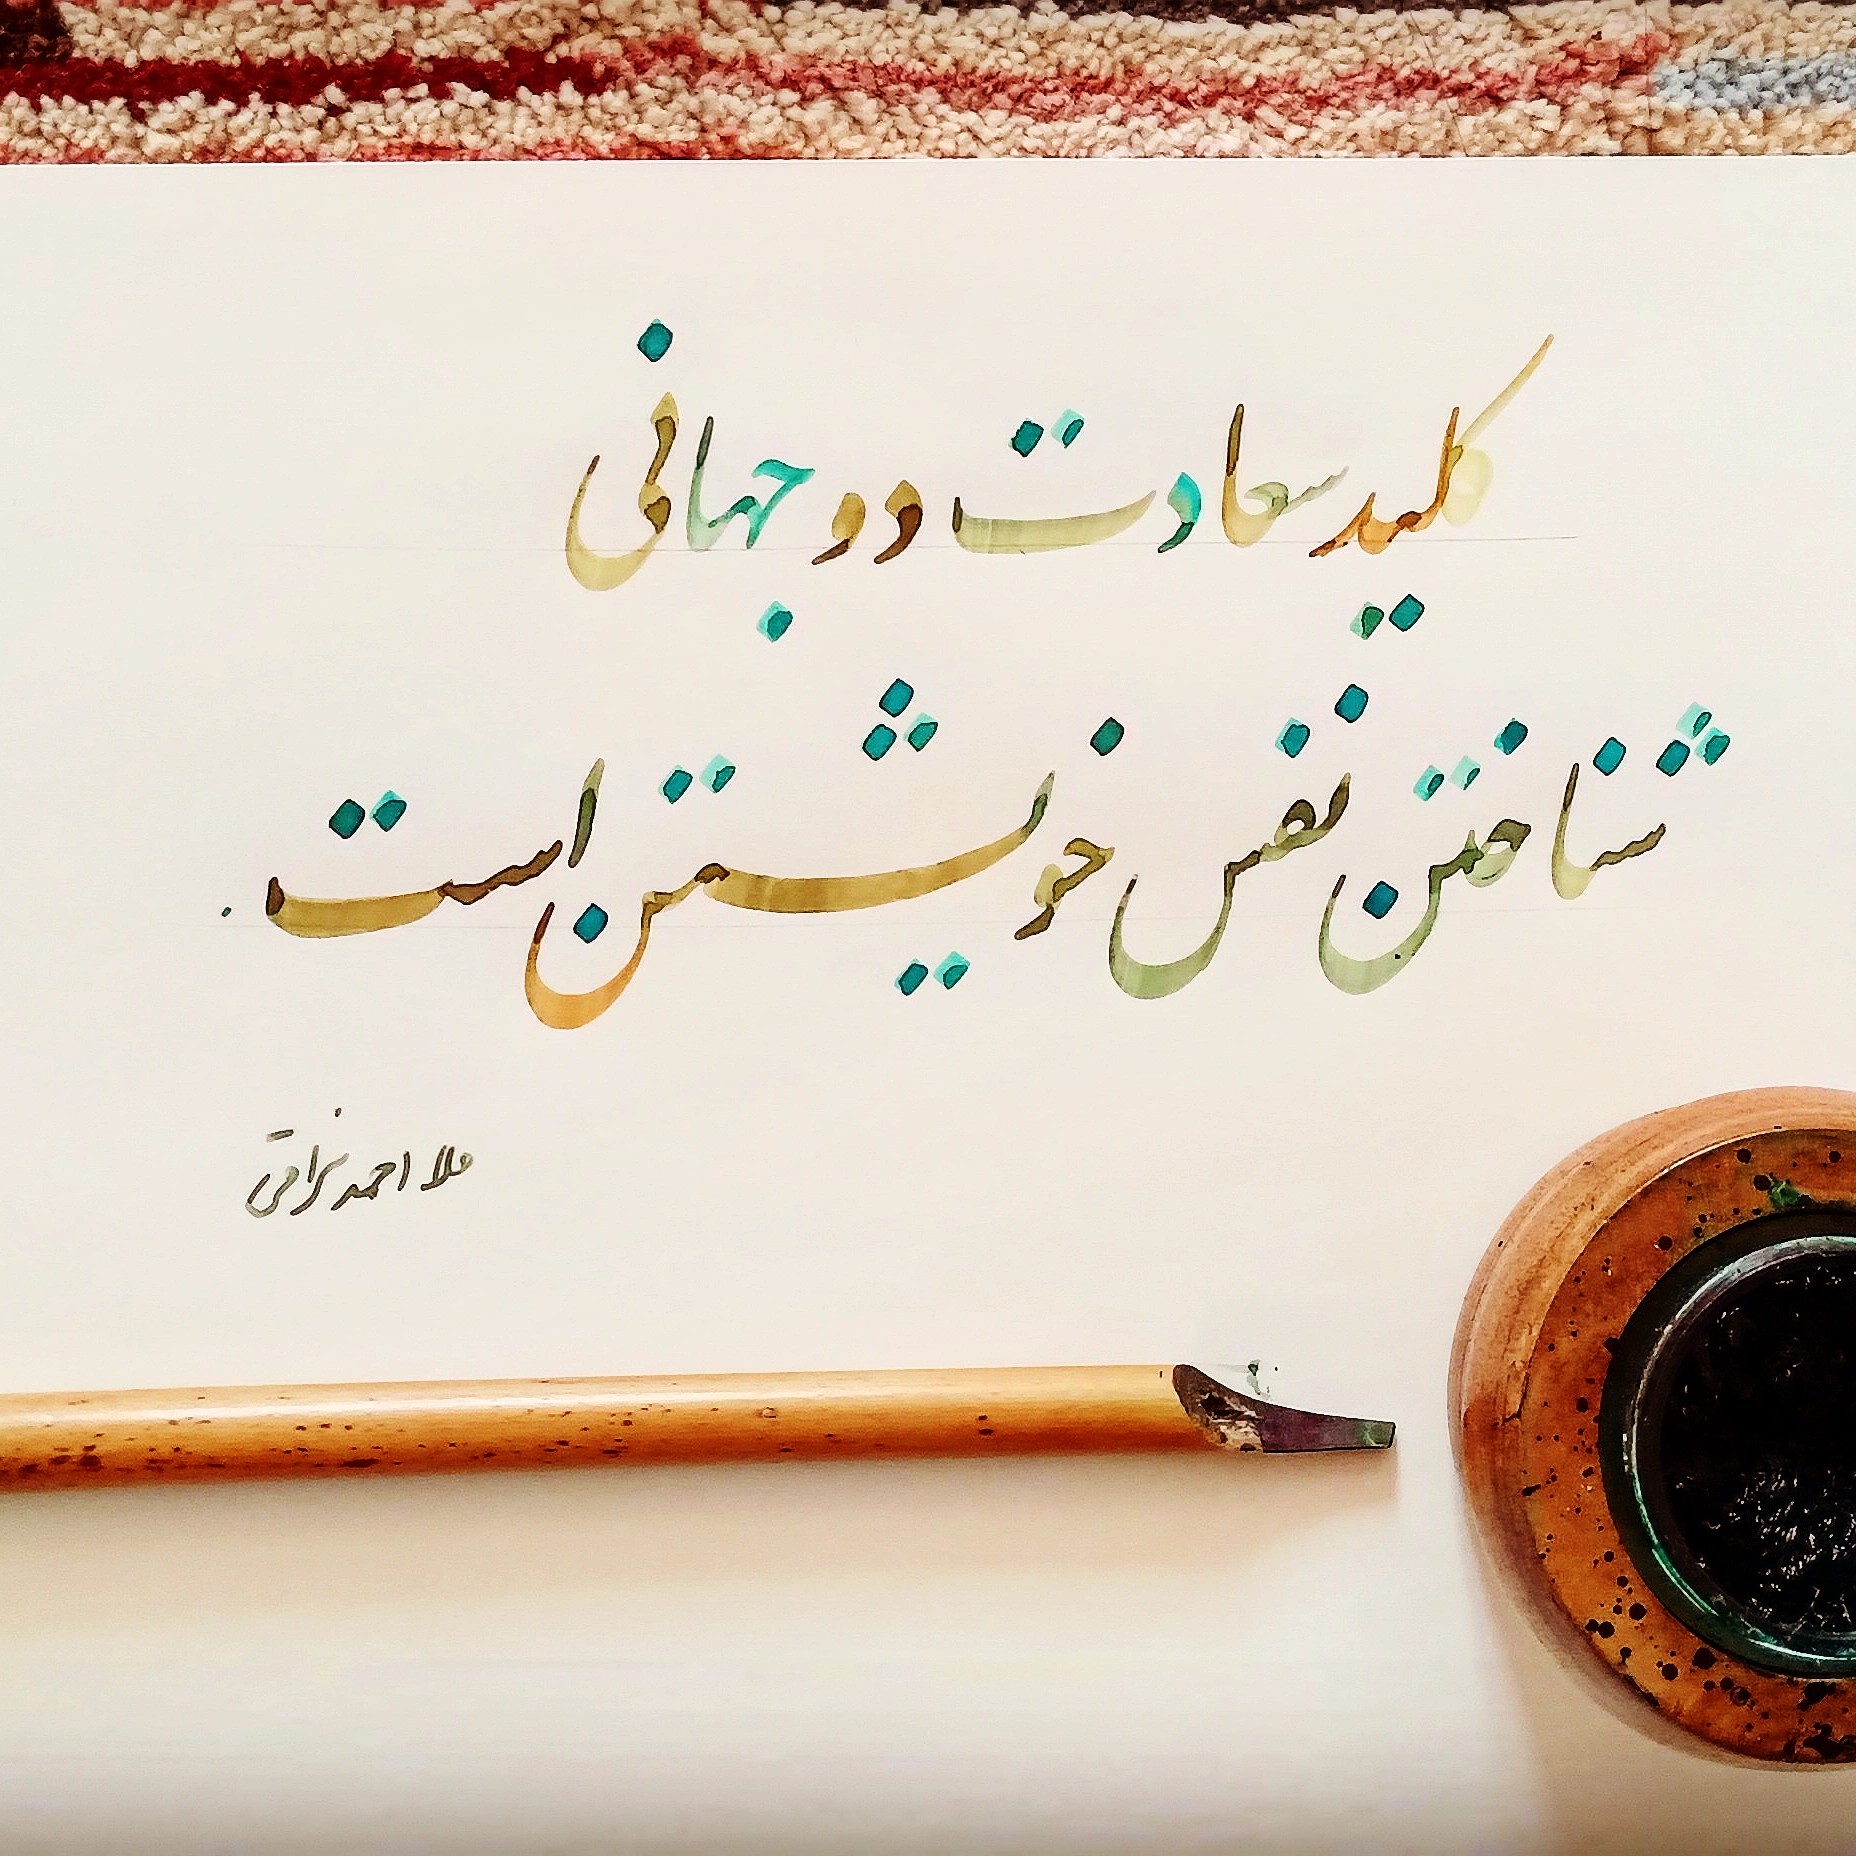 کلید سعادت دو جهانی
شناختن نفس خویشتن است.
ملا احمد نراقی